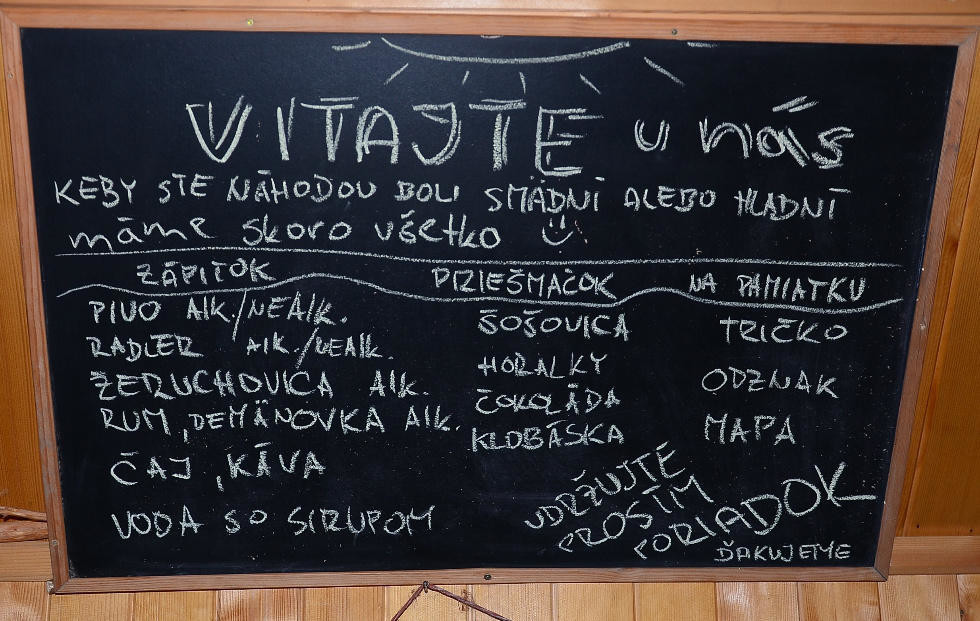 VITAJTE u nás
KEBY STE NÁHODOU BOLI SMÄDNÍ ALEBO HLADNÍ
máme skoro všetko
ZÁPITOK
PIVO Alk./NEAlk.
RADLER Alk./NEAlk.
ŽERUCHOVICA Alk.
RUM, DEMÄNOVKA Alk.
ČAJ, KÁVA
VODA SO SIRUPOM
PRIEŠMAČOK
ŠOŠOVICA
HORALKY
ČOKOLÁDA
KLOBÁSKA
NA PAMIATKU
TRIČKO
ODZNAK
MAPA
UDRŽUJTE
PROSÍM
PORIADOK
ĎAKUJEME